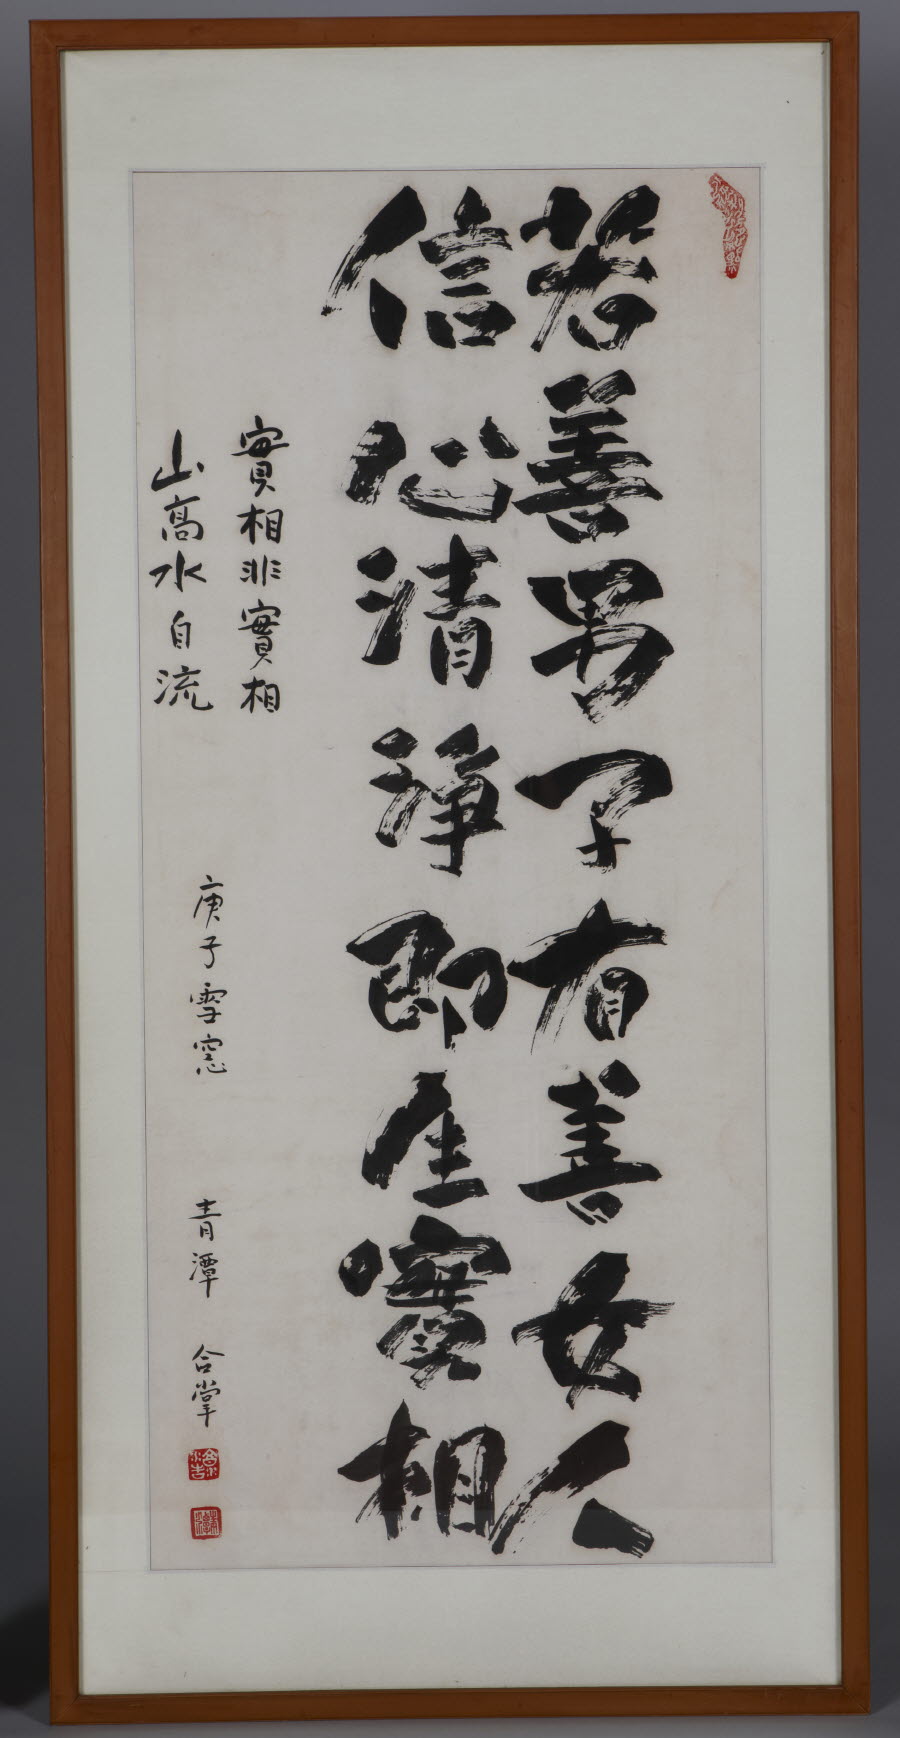 若善男子有善女人
信心清淨即生實相
實相非實相
山高水自流
庚子雪窓
青潭 合掌